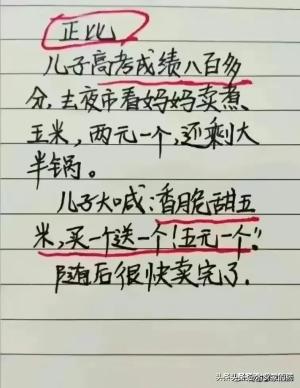 正比
儿子高考成绩八百多
分，去夜市看妈妈卖煮
玉米，两元一个，还剩大
半锅。
儿子大喊：香脆甜玉
米，买一个送一个！五元一个！
随后很快卖完了.